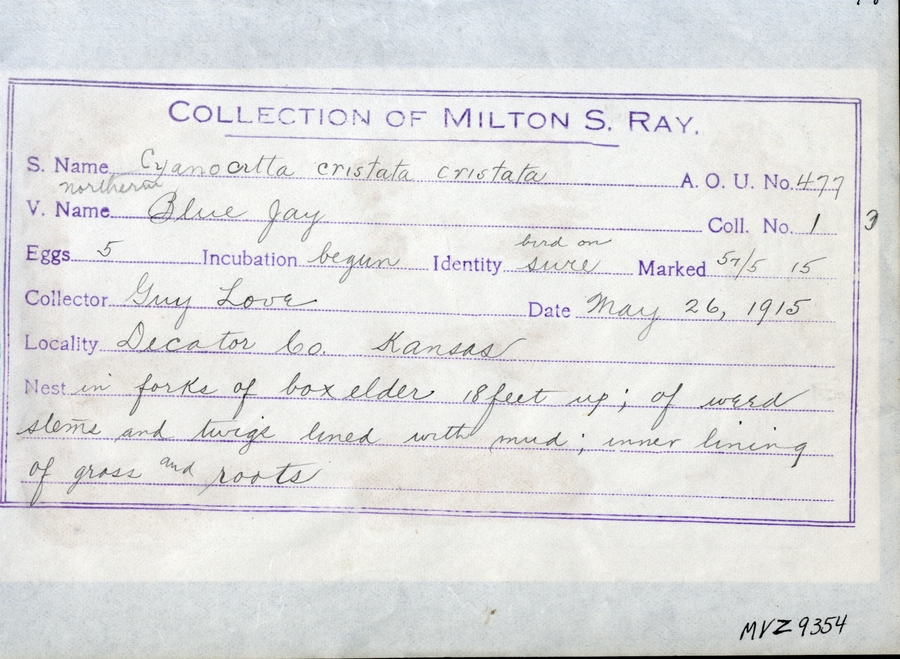 COLLECTION OF MILTON S. RAY.
S. Name Cyanocitta cristata cristata A. O. U. No. 477
northern
V. Name Blue Jay Coll. No. 1
bird on
Eggs 5 Incubation begun Identity sure Marked 57/5 15
Collector Guy Love Date May 26, 1915
Locality Decator Co. Kansas
Nest in forks of box elder 18 feet up; of weed
stems and twigs lined with mud; inner lining
of grass and roots
MVZ 9354